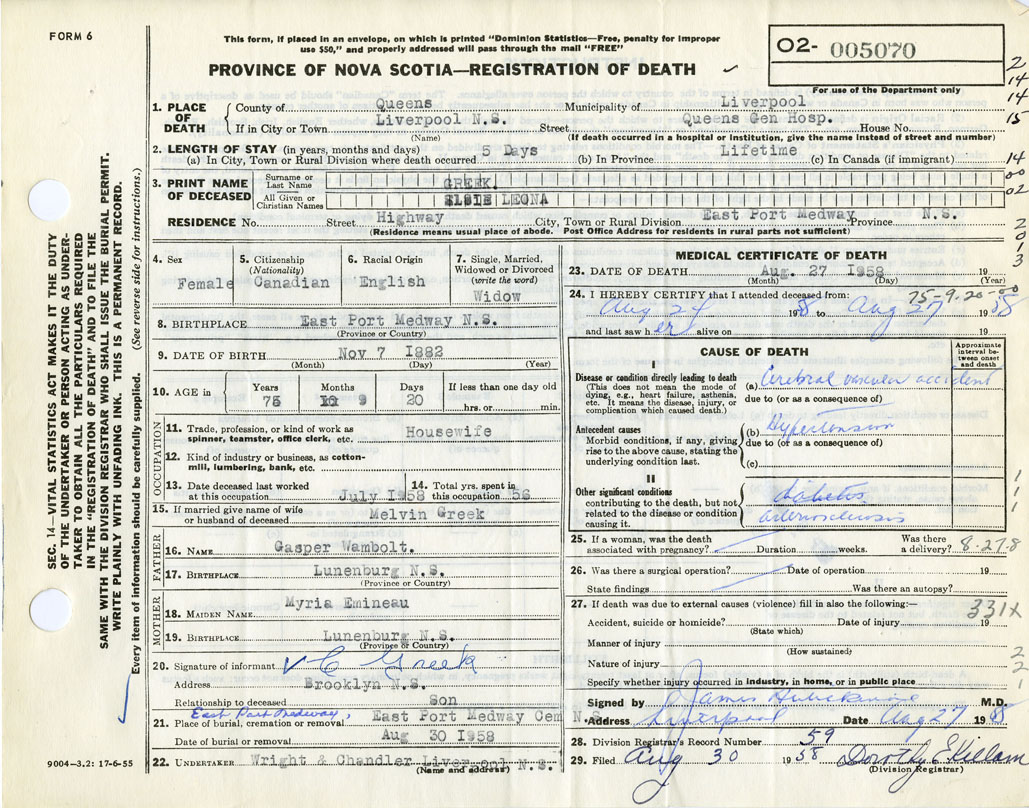 FORM 6
This form, if placed in an envelope, on which is printed "Dominion Statistics—Free, penalty for improper
use $50," and properly addressed will pass through the mail "FREE"
PROVINCE OF NOVA SCOTIA—REGISTRATION OF DEATH
02- 005070
For use of the Department only
2
14
14
15
14
00
02
2
0
1
3
SEC. 14—VITAL STATISTICS ACT MAKES IT THE DUTY
OF THE UNDERTAKER OR PERSON ACTING AS UNDER-
TAKER TO OBTAIN ALL THE PARTICULARS REQUIRED
IN THE "REGISTRATION OF DEATH" AND TO FILE THE
SAME WITH THE DIVISION REGISTRAR WHO SHALL ISSUE THE BURIAL PERMIT.
WRITE PLAINLY WITH UNFADING INK. THIS IS A PERMANENT RECORD.
Every item of information should be carefully supplied. (See reverse side for instructions.)
1. PLACE OF DEATH
County of Queens Municipality of Liverpool
If in City or Town Liverpool N.S. Street Queens Gen Hosp. House No.
(Name) (If death occurred in a hospital or institution, give the name instead of street and number)
2. LENGTH OF STAY (in years, months and days)
(a) In City, Town or Rural Division where death occurred 5 Days (b) In Province Lifetime (c) In Canada (if immigrant)
3. PRINT NAME OF DECEASED
Surname or Last Name GREEK.
All Given or Christian Names ELSIE LEONA
RESIDENCE No. Street Highway City, Town or Rural Division East Port Medway Province N.S.
(Residence means usual place of abode. Post Office Address for residents in rural parts not sufficient)
4. Sex Female
5. Citizenship (Nationality) Canadian
6. Racial Origin English
7. Single, Married, Widowed or Divorced (write the word) Widow
8. BIRTHPLACE East Port Medway N.S.
(Province or Country)
9. DATE OF BIRTH Nov 7 1882
(Month) (Day) (Year)
10. AGE in Years 75 Months 9 Days 20 If less than one day old hrs. or min.
OCCUPATION
11. Trade, profession, or kind of work as spinner, teamster, office clerk, etc. Housewife
12. Kind of industry or business, as cotton-mill, lumbering, bank, etc.
13. Date deceased last worked at this occupation July 1958 14. Total yrs. spent in this occupation 56
15. If married give name of wife or husband of deceased Melvin Greek
FATHER
16. NAME Gasper Wambolt.
17. BIRTHPLACE Lunenburg N.S.
(Province or Country)
MOTHER
18. MAIDEN NAME Myria Emineau
19. BIRTHPLACE Lunenburg N.S.
(Province or Country)
20. Signature of informant C Greek
Address Brooklyn N.S.
Relationship to deceased Son
East Port Medway,
21. Place of burial, cremation or removal East Port Medway Cem N.S.
Date of burial or removal Aug 30 1958
22. UNDERTAKER Wright & Chandler Liverpool N.S.
(Name and address)
9004—3.2: 17-6-55
MEDICAL CERTIFICATE OF DEATH
23. DATE OF DEATH Aug. 27 1958 19
(Month) (Day) (Year)
75-9-20-00
24. I HEREBY CERTIFY that I attended deceased from:
Aug 24 1958 to Aug 27 1958
and last saw her alive on 19
CAUSE OF DEATH
Approximate interval between onset and death
I
Disease or condition directly leading to death
(This does not mean the mode of
dying, e.g., heart failure, asthenia,
etc. It means the disease, injury, or
complication which caused death.)
(a) Cerebral vascular accident
due to (or as a consequence of)
Antecedent causes
Morbid conditions, if any, giving
rise to the above cause, stating the
underlying condition last.
(b) Hypertension
due to (or as a consequence of)
(c)
II
Other significant conditions
contributing to the death, but not
related to the disease or condition
causing it.
diabetes
arteriosclerosis
1
1
1
25. If a woman, was the death associated with pregnancy? Duration weeks. Was there a delivery? 8-27-8
26. Was there a surgical operation? Date of operation 19
State findings Was there an autopsy?
27. If death was due to external causes (violence) fill in also the following:— 331X
Accident, suicide or homicide? Date of injury 19
(State which)
Manner of injury
(How sustained)
Nature of injury
Specify whether injury occurred in industry, in home, or in public place
2
2
1
Signed by James M.D.
Address Liverpool Date Aug 27 1958
28. Division Registrar's Record Number 59
29. Filed Aug 30 1958 Dorothy E Killam
(Division Registrar)